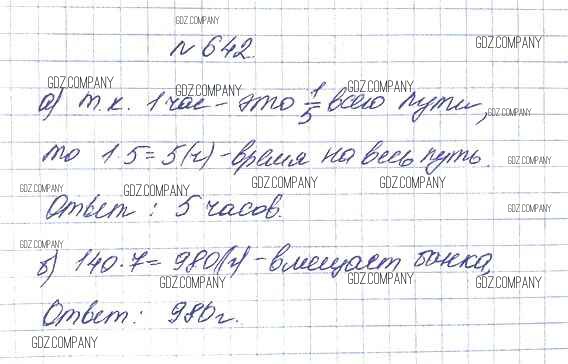 GDZ.COMPANY
№ 642.
GDZ.COMPANY
GDZ.COMPANY GDZ.COMPANY GDZ.COMPANY
а) т.к. 1 час - это 1/5 всего пути,
GDZ.COMPANY
то 1·5=5(ч)-время на весь путь.
GDZ.COMPANY
GDZ.COMPANY GDZ.COMPANY GDZ.COMPANY GDZ.COMPANY
Ответ: 5 часов.
GDZ.COMPANY
GDZ.COMPANY
б) 140·7=980(г)-вмещает банка,
GDZ.COMPANY GDZ.COMPANY GDZ.COMPANY
Ответ: 980г.
GDZ.COMPANY